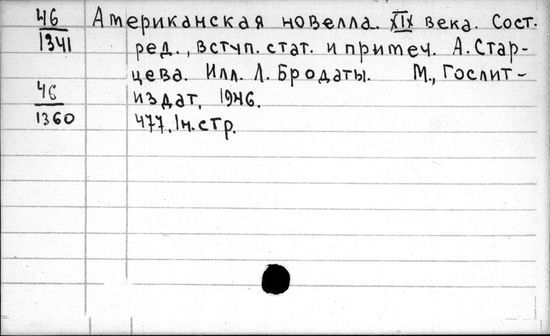 46 Американская новелла XIX века. Сост.
1341 ред., вступ. стат. и примеч. А. Стар-
цева. Илл. Л. Бродаты. М., Гослит-
46 издат, 1946.
1360 477, 1 н. стр.